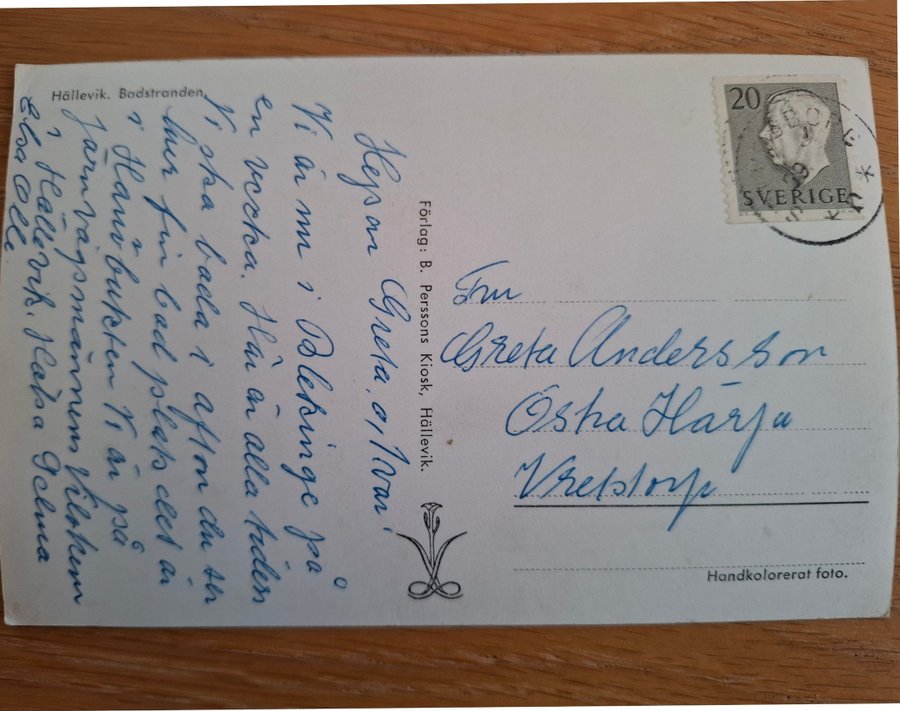 Hällevik. Badstranden.
20
SVERIGE
Hejsan Greta, o, Ivar!
Vi är nu i Blekinge på
en vecka. Här är alla tiders
Vi ska bada i afton du ser
hur fin badplats det är
i Hanöbukten Vi är på
Järnvägsmännens Vilohem
i Hällevik. Hälsa Delma
Elsa Olle
Förlag: B. Perssons Kiosk, Hällevik.
Fru
Greta Andersson
Östra Härja
Vretstorp
Handkolorerat foto.